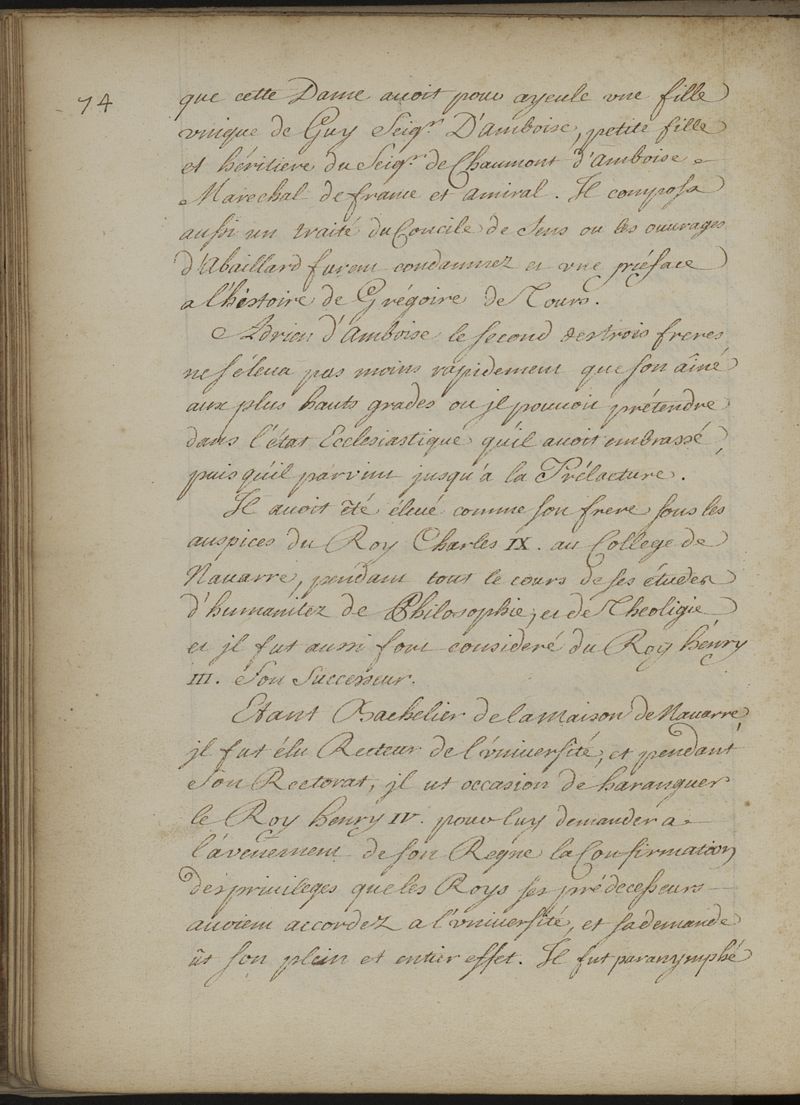 74
que cette Dame auoit pour ayeule vne fille
vnique de Guy Seigr. D'amboise, petite fille
et héritiere du Seigr. de Chaumont d'amboise
Marechal de france et amiral. Il composa
aussi un traité du Concile de Sens ou les ouurages
d'Abaillard furent condamnez et vne préface
a l'histoire de Grégoire de Tours.
Adrien d'amboise le second des trois freres
ne s'éleua pas moins rapidement que son aîné
aux plus hauts grades ou jl pouuoit prétendre
dans l'état Ecclesiastique qu'il auoit embrassé,
puis qu'il paruint jusqu'a la Prélacture.
Il auoit été éleué comme son frere sous les
auspices du Roy Charles IX. au College de
Nauarre, pendant tout le cours de ses études
d'humanitez de Philosophie, et de Theoligie
et jl fut aussi fort consideré du Roy henry
III. Son Successeur.
Etant Bachelier de la maison de Nauarre,
jl fut élu Recteur de l'vniuersité, et pendant
Son Rectorat, jl ut occasion de haranguer
le Roy henry IV. pour luy demander a
l'avenement de son Regne la Confirmation
des priuileges que les Roys ses prédecesseurs
auoient accordez a l'vniuersité, et sa demande
ût son plein et entier effet. Il fut paranymphé